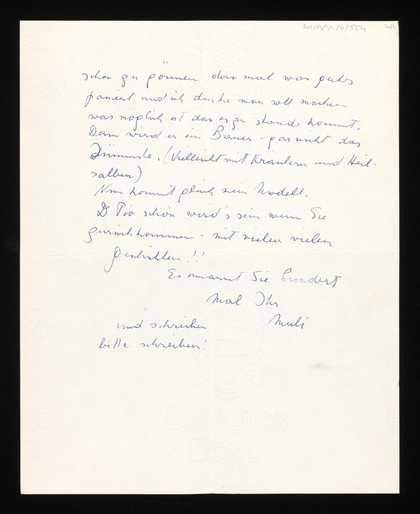 schon zu gönnen dass mal was gutes
passiert und ich denke man soll machen
was möglich ist das es zu stande kommt.
Dann wird er im Bauer- gar nicht das
(Vielleicht mit Kräutern und Heil-
salben)
Nun kommt gleich mein Modell.
schön wird's sein wenn Sie
zurückkommen - mit vielen vielen
!!
Es umarmt Sie hundert
Mal Ihr
Muli
und schreiben
bitte schreiben!